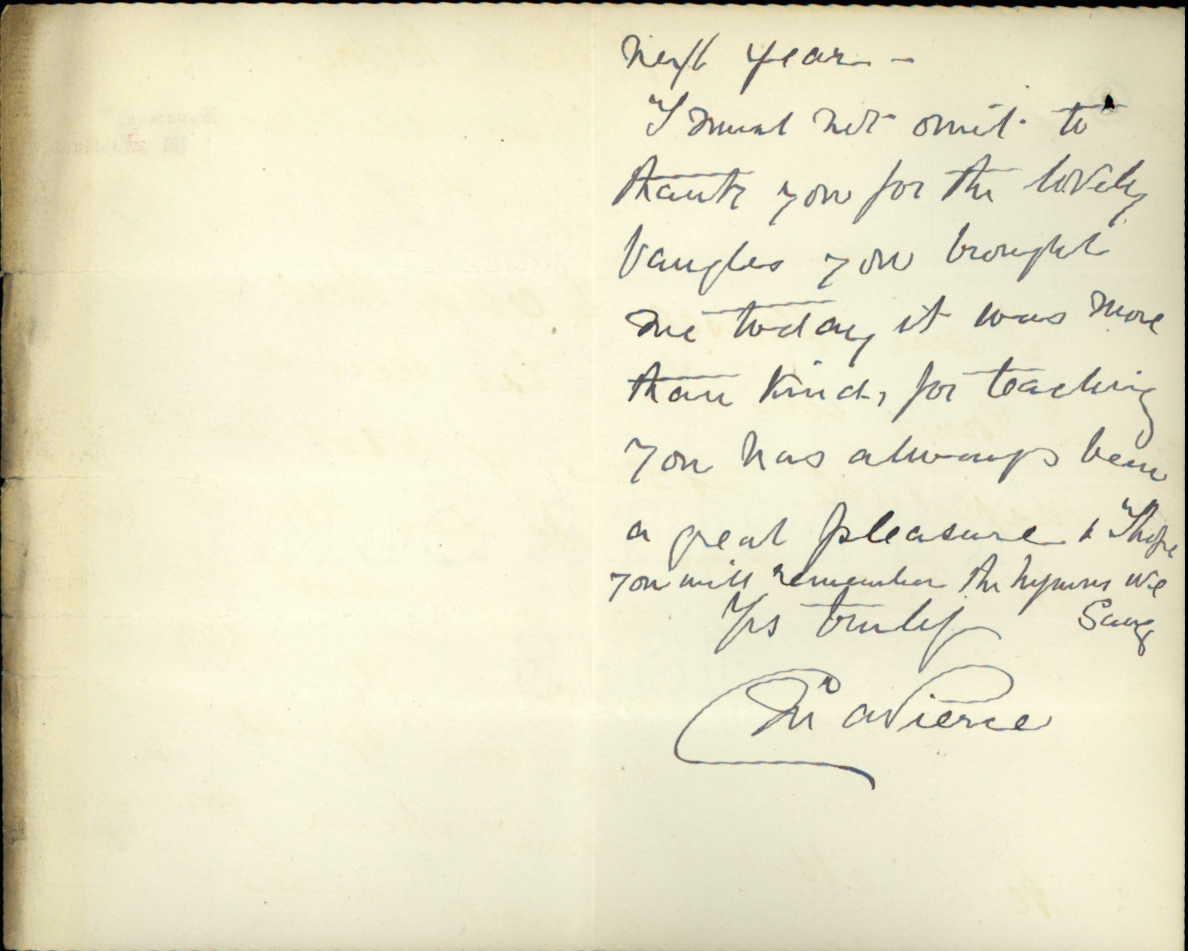 next year -
I must not omit to
thank you for the lovely
bangles you brought
me today, it was more
than kind, for teaching
you has always been
a great pleasure & I hope
you will remember the hymns we
Sang
Yrs truly
Pierce